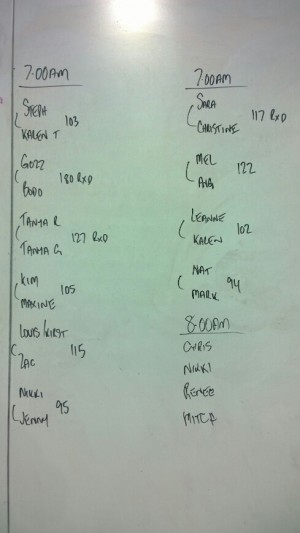 7:00AM
STEPH
103
KAREN T
GOZZ
180 RXD
BODO
TANYA R
127 RXD
TANYA G
KIM
105
MAXINE
LOUIS/KIRST
115
ZAC
NIKKI
95
JENNY
7:00AM
SARA
117 RXD
CHRISTINE
MEL
122
LEANNE
102
KAREN
NAT
94
MARK
8:00AM
CHRIS
NIKKI
RENEE
MITCH